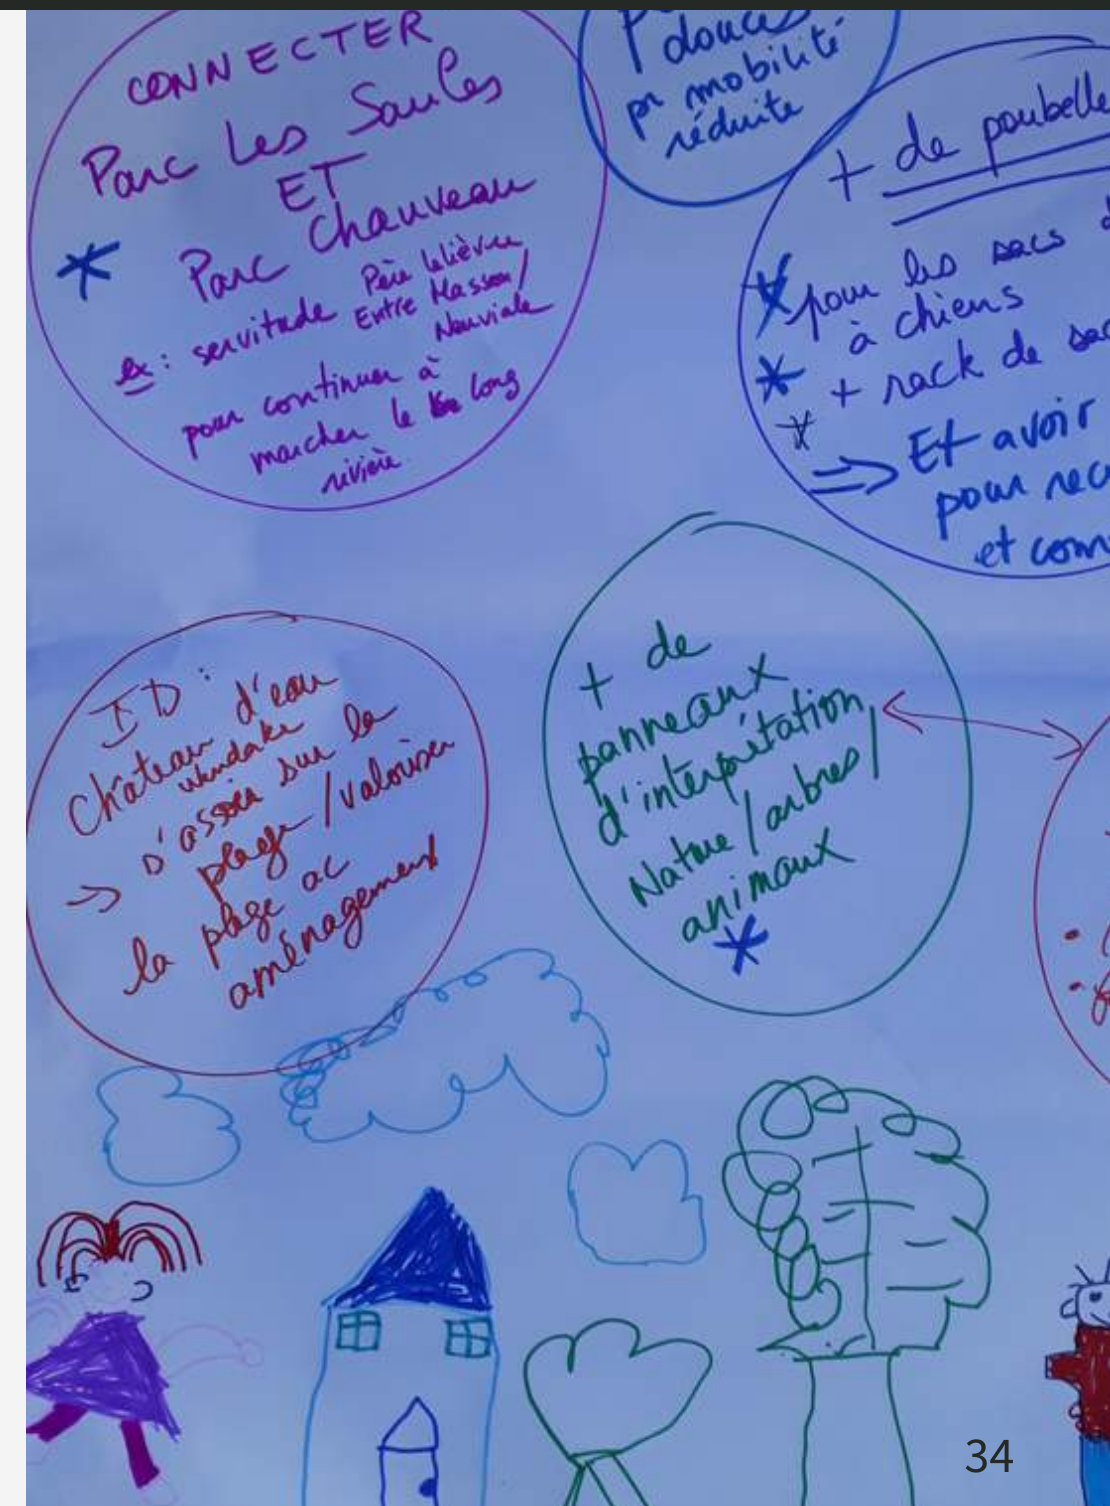 CONNECTER
Parc Les Saules
ET
Parc Chauveau
ex: servitude Père Lelièvre
Entre Masson/
Neuviale
pour continuer à
marcher le long
rivière
douces
pr mobilité
réduite
+ de poubelle
pour les sacs
à chiens
+ rack de sac
⇒ Et avoir
pour rec
et com
ID:
Château d'eau
Wendake
D'assoir sur la
→ plage/valoriser
la plage ac
aménagement
+ de
panneaux
d'interprétation
Nature/arbres/
animaux
34